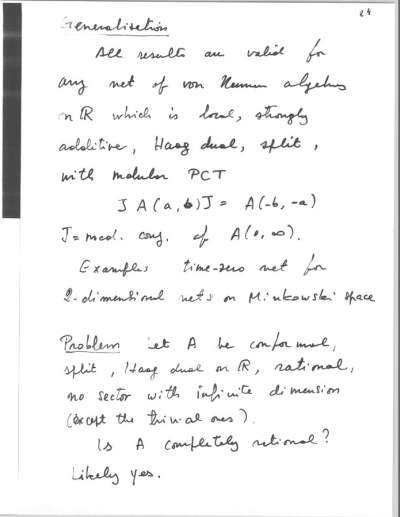 24
Generalisation
All results are valid for
any net of von Neumann algebras
on R which is local, strongly
additive, Haag dual, split,
with modular PCT
J A(a,b) J = A(-b, -a)
J = mod. conj. of A(0, ∞).
Examples time-zero net for
2-dimensional nets on Minkowski space
Problem Let A be conformal,
split, Haag dual on R, rational,
no sector with infinite dimension
(except the trivial ones).
Is A completely rational?
Likely yes.